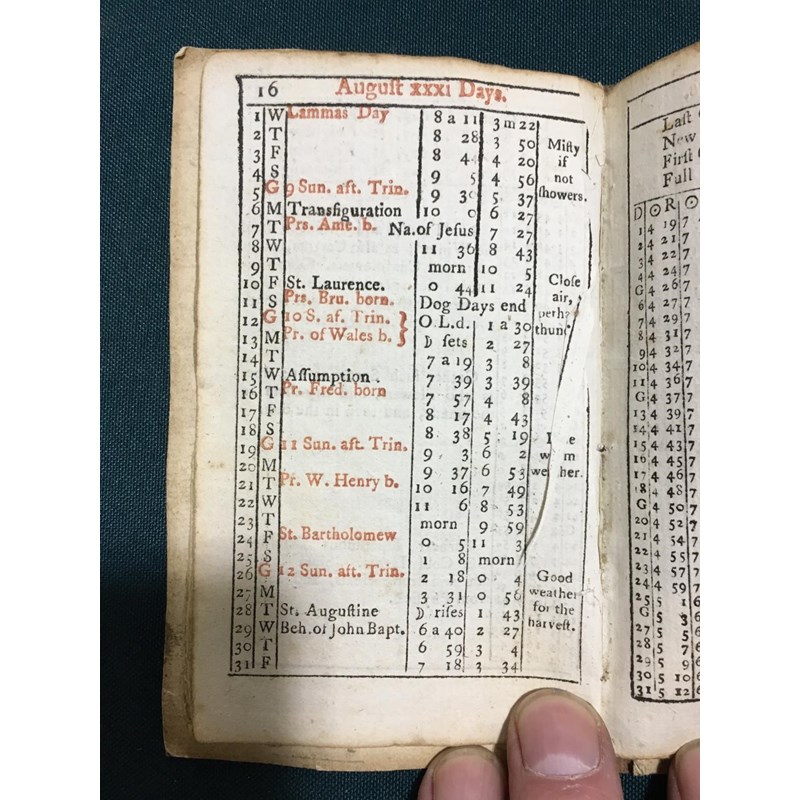 16 Auguſt xxxi Days.
1 W Lammas Day 8 a 11 3 m 22
2 T 8 28 3 50 Miſty
3 F 8 4 20 if
4 S 9 5 4 56 not
5 G 9 Sun. aft. Trin. 9 5 37 ſhowers.
6 M Transfiguration 10 0 6 27
7 T Prs. Ame. b. Na. of Jeſus 7 27
8 W 11 36 8 43
9 T morn 10 5
10 F St. Laurence. 0 44 11 24 Cloſe
11 S Prs. Bru. born. Dog Days end air,
12 G 10 S. af. Trin. O.L.d. 1 a 30
13 M Pr. of Wales b. } ☽ ſets 2 27
14 T 7 a 19 3 8
15 W Aſſumption . 7 39 3 39
16 T Pr. Fred. born 7 57 4 8
17 F 8 17 4 43
18 S 8 38 5 19
19 G 11 Sun. aft. Trin. 9 3 6 2
20 M 9 37 6 53
21 T Pr. W. Henry b. 10 16 7 49
22 W 11 6 8 53
23 T morn 9 59
24 F St. Bartholomew 0 5 11 3
25 S 1 8 morn
26 G 12 Sun. aft. Trin. 2 18 0 4 Good
27 M 3 31 0 56 weather
28 T St. Auguſtine ☽ riſes 1 43 for the
29 W Beh. of John Bapt. 6 a 40 2 27 harveſt.
30 T 6 59 3 4
31 F 7 18 3 34
Laſt
New
Firſt
Full
D ☉ R ☉
1 4 19 7
2 4 21 7
3 4 22 7
4 4 24 7
G 4 26 7
6 4 27 7
7 4 29 7
8 4 31 7
9 4 32 7
10 4 34 7
11 4 36 7
G 4 37 7
13 4 39 7
14 4 41 7
15 4 43 7
16 4 45 7
17 4 46 7
18 4 48 7
G 4 50 7
20 4 52 7
21 4 54 7
22 4 55 7
23 4 57 7
24 4 59 7
25 5 1 6
G 5 3 6
27 5 5 6
28 5 7 6
29 5 9 6
30 5 10 6
31 5 12 6